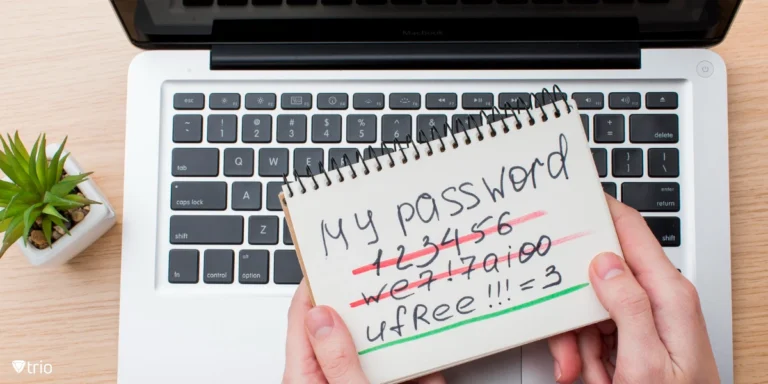 esc
~ ! @ # $ % ^ & + delete
` 1 2 3 4 5 6 =
tab Q W E } |
] \
caps lock A return
shift Z shift
fn control option
My password
123456
we7!7aioo
ufRee!!!=3
trio